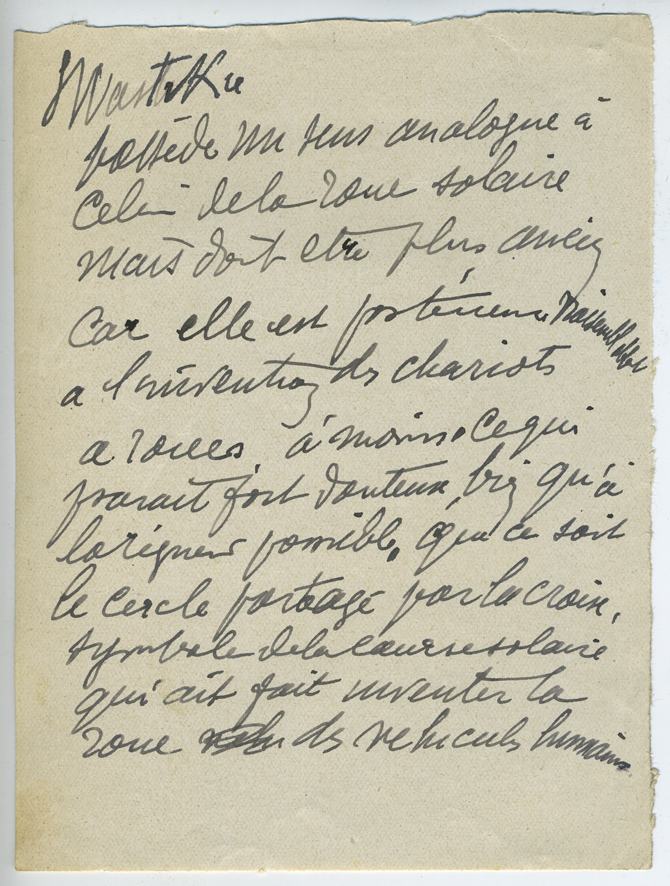 Swastika
possède un sens analogue à
Celui de la roue solaire
mais doit etre plus ancien
Car elle est postérieure
a l'invention des chariots
a roues à moins, ce qui
parait fort douteux, bien qu'à
la rigueur possible, que ce soit
le cercle partagé par la croix,
symbole de la course solaire
qui ait fait inventer la
roue des vehicules humains